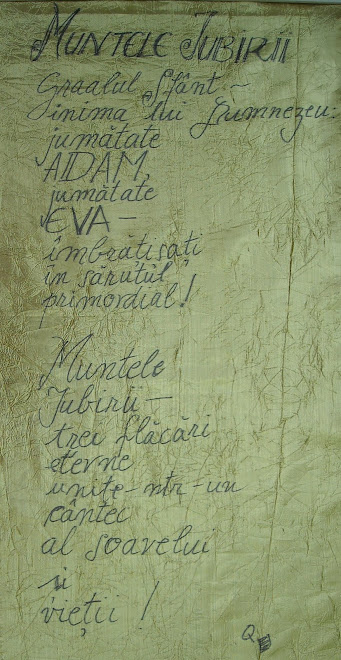 MUNTELE IUBIRII
Graalul Sfânt -
inima lui Dumnezeu:
jumătate
AIDAM,
jumătate
EVA -
îmbrătisați
în sărutul
primordial!
Muntele
Iubirii -
trei flăcări
eterne
unite-ntr-un
cântec
al soarelui
și
vieții!